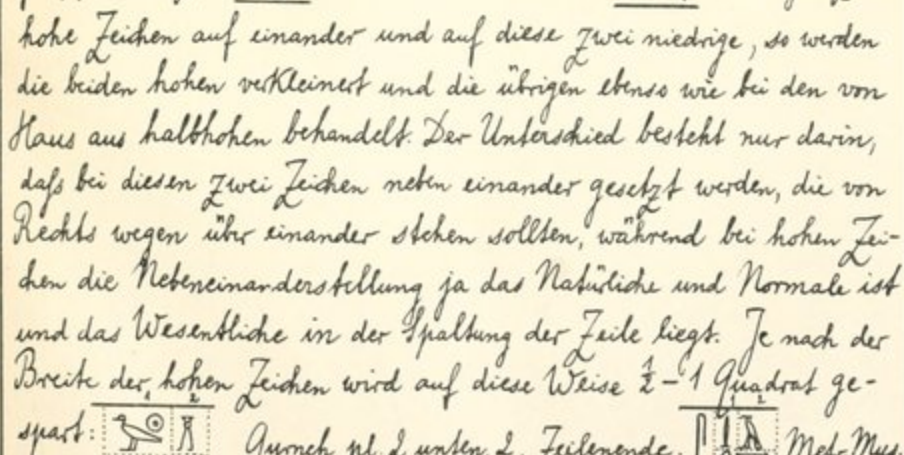 hohe Zeichen auf einander und auf diese zwei niedrige, so werden
die beiden hohen verkleinert und die übrigen ebenso wie bei den von
Haus aus halbhohen behandelt. Der Unterschied besteht nur darin,
daſs bei diesen zwei Zeichen neben einander gesetzt werden, die von
Rechts wegen über einander stehen sollten, während bei hohen Zei-
chen die Nebeneinanderstellung ja das Natürliche und Normale ist
und das Wesentliche in der Spaltung der Zeile liegt. Je nach der
Breite der hohen Zeichen wird auf diese Weise ½ – 1 Quadrat ge-
spart: 1 2 Gurneh pl. 2 unten 2. Zeilenende. 1 2 Met. Mus.